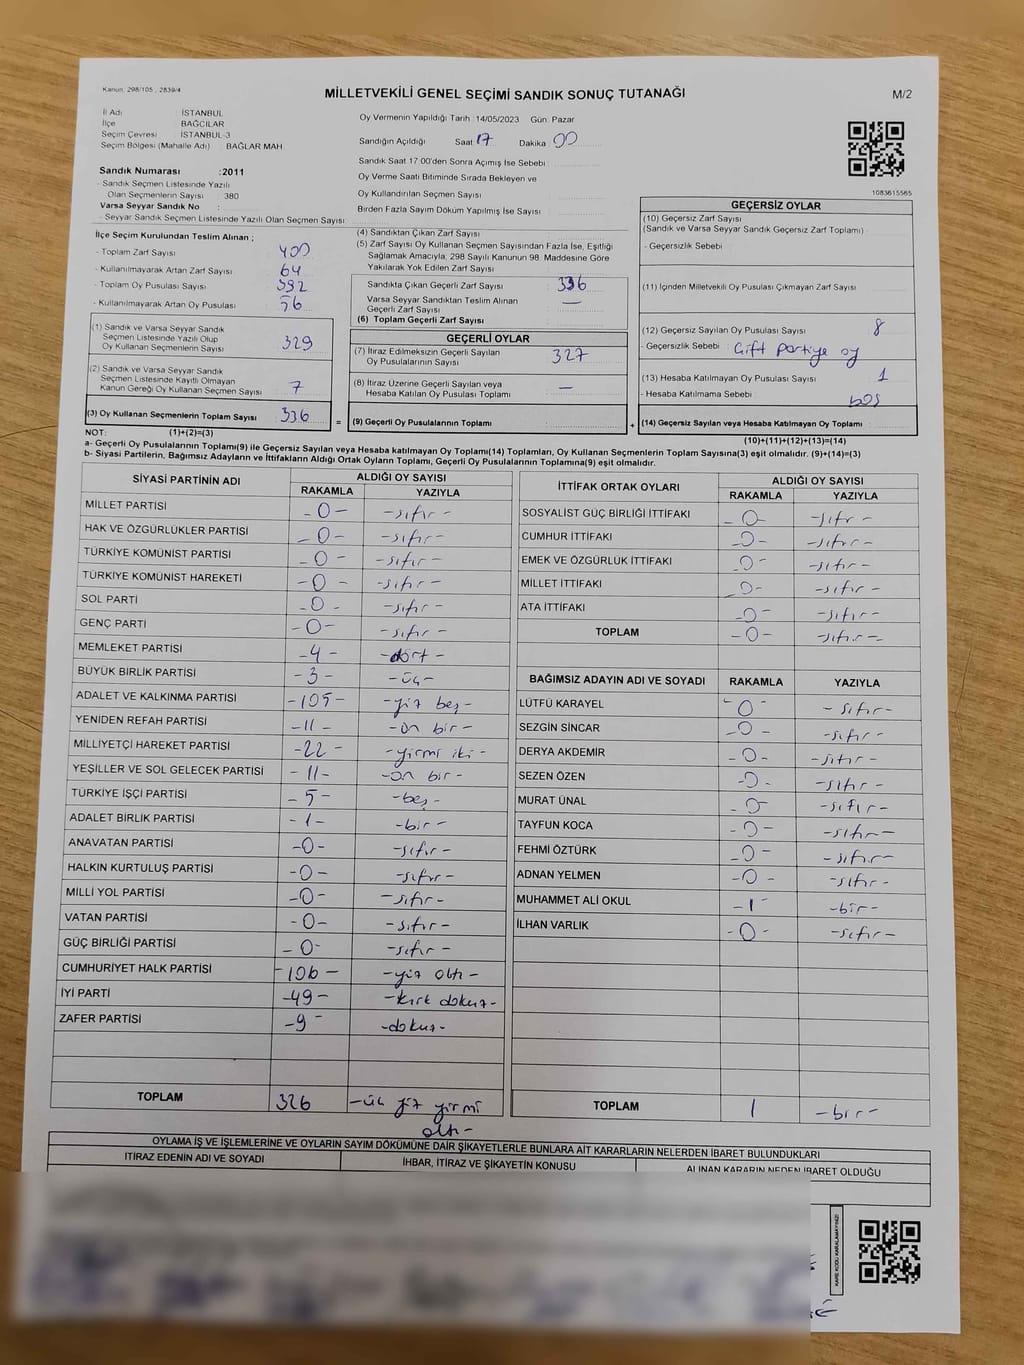 Kanun: 298/105 , 2839/4
MİLLETVEKİLİ GENEL SEÇİMİ SANDIK SONUÇ TUTANAĞI
M/2
İl Adı : İSTANBUL
İlçe : BAĞCILAR
Seçim Çevresi : İSTANBUL-3
Seçim Bölgesi (Mahalle Adı) : BAĞLAR MAH
Sandık Numarası :2011
- Sandık Seçmen Listesinde Yazılı
Olan Seçmenlerin Sayısı : 380
Varsa Seyyar Sandık No :
- Seyyar Sandık Seçmen Listesinde Yazılı Olan Seçmen Sayısı:
Oy Vermenin Yapıldığı Tarih :14/05/2023 Gün: Pazar
Sandığın Açıldığı Saat 17 Dakika 00
Sandık Saat 17:00'den Sonra Açılmış İse Sebebi :
Oy Verme Saati Bitiminde Sırada Bekleyen ve
Oy Kullandırılan Seçmen Sayısı :
Birden Fazla Sayım Döküm Yapılmış İse Sayısı :
1083615565
İlçe Seçim Kurulundan Teslim Alınan ;
- Toplam Zarf Sayısı : 400
- Kullanılmayarak Artan Zarf Sayısı : 64
- Toplam Oy Pusulası Sayısı : 392
- Kullanılmayarak Artan Oy Pusulası : 56
(1) Sandık ve Varsa Seyyar Sandık
Seçmen Listesinde Yazılı Olup
Oy Kullanan Seçmenlerin Sayısı : 329
(2) Sandık ve Varsa Seyyar Sandık
Seçmen Listesinde Kayıtlı Olmayan
Kanun Gereği Oy Kullanan Seçmen Sayısı : 7
(3) Oy Kullanan Seçmenlerin Toplam Sayısı : 336
(4) Sandıktan Çıkan Zarf Sayısı :
(5) Zarf Sayısı Oy Kullanan Seçmen Sayısından Fazla İse, Eşitliği
Sağlamak Amacıyla, 298 Sayılı Kanunun 98. Maddesine Göre
Yakılarak Yok Edilen Zarf Sayısı :
Sandıkta Çıkan Geçerli Zarf Sayısı : 336
Varsa Seyyar Sandıktan Teslim Alınan
Geçerli Zarf Sayısı : —
(6) Toplam Geçerli Zarf Sayısı :
GEÇERLİ OYLAR
(7) İtiraz Edilmeksizin Geçerli Sayılan
Oy Pusulalarının Sayısı : 327
(8) İtiraz Üzerine Geçerli Sayılan veya
Hesaba Katılan Oy Pusulası Toplamı : —
= (9) Geçerli Oy Pusulalarının Toplamı :
GEÇERSİZ OYLAR
(10) Geçersiz Zarf Sayısı
(Sandık ve Varsa Seyyar Sandık Geçersiz Zarf Toplamı) :
- Geçersizlik Sebebi :
(11) İçinden Milletvekili Oy Pusulası Çıkmayan Zarf Sayısı :
(12) Geçersiz Sayılan Oy Pusulası Sayısı : 8
- Geçersizlik Sebebi : Çift partiye oy
(13) Hesaba Katılmayan Oy Pusulası Sayısı : 1
- Hesaba Katılmama Sebebi : boş
+ (14) Geçersiz Sayılan veya Hesaba Katılmayan Oy Toplamı :
NOT: (1)+(2)=(3)
(10)+(11)+(12)+(13)=(14)
a- Geçerli Oy Pusulalarının Toplamı(9) ile Geçersiz Sayılan veya Hesaba katılmayan Oy Toplamı(14) Toplamları, Oy Kullanan Seçmenlerin Toplam Sayısına(3) eşit olmalıdır. (9)+(14)=(3)
b- Siyasi Partilerin, Bağımsız Adayların ve İttifakların Aldığı Ortak Oyların Toplamı, Geçerli Oy Pusulalarının Toplamına(9) eşit olmalıdır.
SİYASİ PARTİNİN ADI ALDIĞI OY SAYISI
RAKAMLA YAZIYLA
MİLLET PARTİSİ -0- -sıfır-
HAK VE ÖZGÜRLÜKLER PARTİSİ -0- -sıfır-
TÜRKİYE KOMÜNİST PARTİSİ -0- -sıfır-
TÜRKİYE KOMÜNİST HAREKETİ -0- -sıfır-
SOL PARTİ -0- -sıfır-
GENÇ PARTİ -0- -sıfır-
MEMLEKET PARTİSİ -4- -dört-
BÜYÜK BİRLİK PARTİSİ -3- -üç-
ADALET VE KALKINMA PARTİSİ -105- -yüz beş-
YENİDEN REFAH PARTİSİ -11- -on bir-
MİLLİYETÇİ HAREKET PARTİSİ -22- -yirmi iki-
YEŞİLLER VE SOL GELECEK PARTİSİ -11- -on bir-
TÜRKİYE İŞÇİ PARTİSİ -5- -beş-
ADALET BİRLİK PARTİSİ -1- -bir-
ANAVATAN PARTİSİ -0- -sıfır-
HALKIN KURTULUŞ PARTİSİ -0- -sıfır-
MİLLİ YOL PARTİSİ -0- -sıfır-
VATAN PARTİSİ -0- -sıfır-
GÜÇ BİRLİĞİ PARTİSİ -0- -sıfır-
CUMHURİYET HALK PARTİSİ -106- -yüz altı-
İYİ PARTİ -49- -kırk dokuz-
ZAFER PARTİSİ -9- -dokuz-
TOPLAM 326 -üç yüz yirmi
altı-
İTTİFAK ORTAK OYLARI ALDIĞI OY SAYISI
RAKAMLA YAZIYLA
SOSYALİST GÜÇ BİRLİĞİ İTTİFAKI -0- -sıfır-
CUMHUR İTTİFAKI -0- -sıfır-
EMEK VE ÖZGÜRLÜK İTTİFAKI -0- -sıfır-
MİLLET İTTİFAKI -0- -sıfır-
ATA İTTİFAKI -0- -sıfır-
TOPLAM -0- -sıfır-
BAĞIMSIZ ADAYIN ADI VE SOYADI RAKAMLA YAZIYLA
LÜTFÜ KARAYEL -0- -sıfır-
SEZGİN SİNCAR -0- -sıfır-
DERYA AKDEMİR -0- -sıfır-
SEZEN ÖZEN -0- -sıfır-
MURAT ÜNAL -0- -sıfır-
TAYFUN KOCA -0- -sıfır-
FEHMİ ÖZTÜRK -0- -sıfır-
ADNAN YELMEN -0- -sıfır-
MUHAMMET ALİ OKUL -1- -bir-
İLHAN VARLIK -0- -sıfır-
TOPLAM 1 -bir-
OYLAMA İŞ VE İŞLEMLERİNE VE OYLARIN SAYIM DÖKÜMÜNE DAİR ŞİKAYETLERLE BUNLARA AİT KARARLARIN NELERDEN İBARET BULUNDUKLARI
İTİRAZ EDENİN ADI VE SOYADI İHBAR, İTİRAZ VE ŞİKAYETİN KONUSU ALINAN KARARIN NEDEN İBARET OLDUĞU
KARE KODU KARALAMAYINIZ!